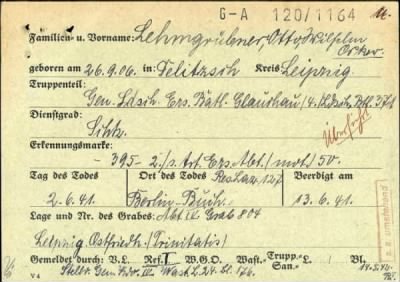 G-A 120/1164
Familien- u. Vorname: Lehmgrübner, Otto Wilhelm
Oskar
geboren am 26.9.06. in: Delitzsch Kreis Leipzig
Truppenteil:
Gen. Ldsch. Ers. Batl. Glauchau/4. Ldsch. Btl. 371
Dienstgrad:
Schtz.
Überführt
Erkennungsmarke:
-395- 2./s. Art. Ers. Abt. (mot) 50.
Tag des Todes Ort des Todes Res. Laz. 127 Beerdigt am
2.6.41. Berlin-Buch 13.6.41.
Lage und Nr. des Grabes: Abt. IV Grab 804
Leipzig Ostfriedh. (Trinitatis)
s. a. umstehend
Gemeldet durch: V.L. Ref. I W.G.O. Wast.- Trupp.- San.- L./ Bl.
V 4 Stellv. Gen. Kdo. IV Wast. L. 24. Bl. 176.